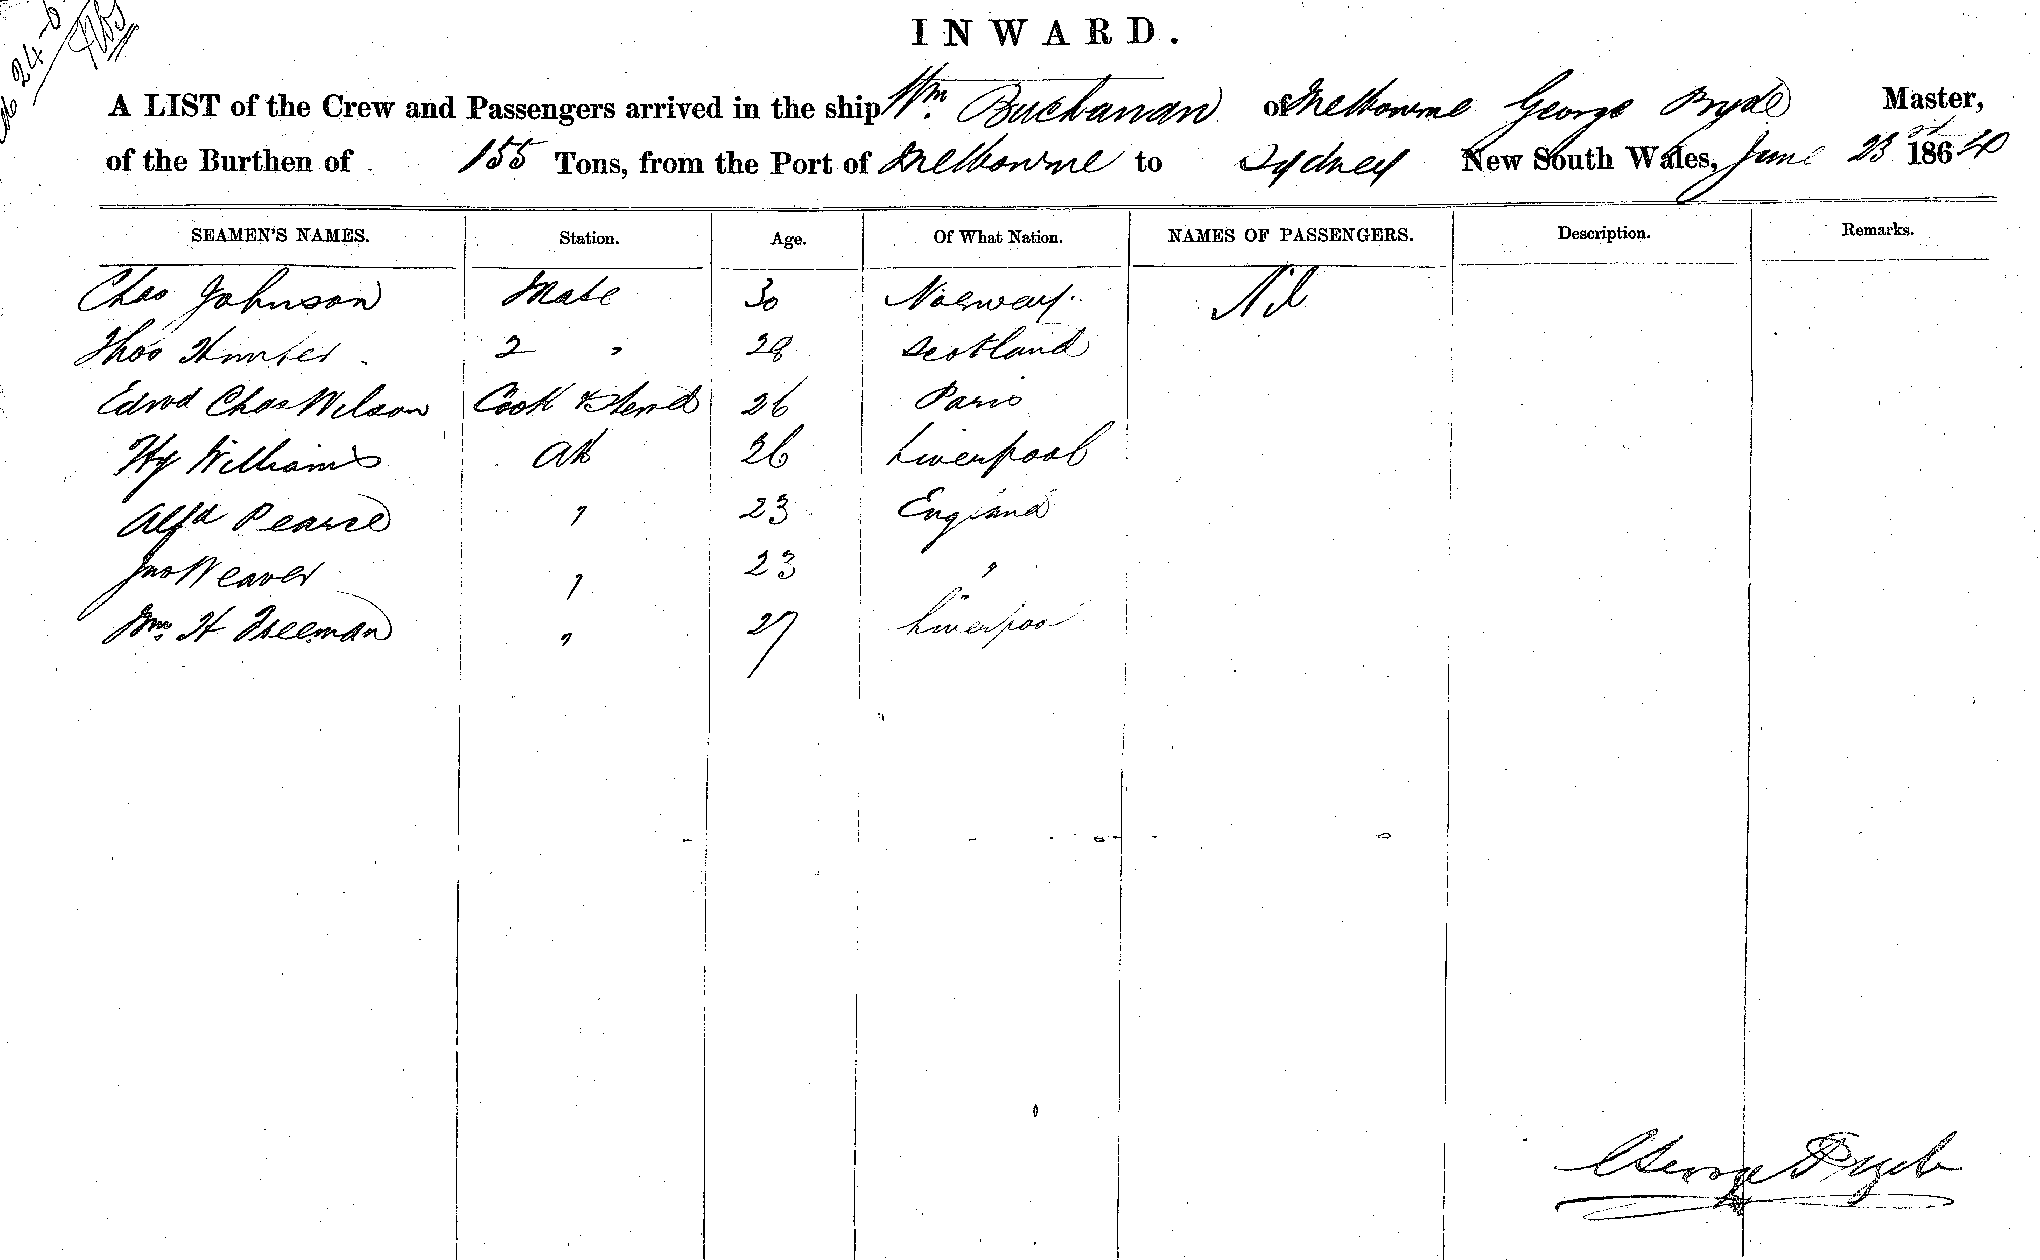 24-6
INWARD.
A LIST of the Crew and Passengers arrived in the ship Wm. Buchanan of Melbourne George Pryde Master,
of the Burthen of 155 Tons, from the Port of Melbourne to Sydney New South Wales, June 23rd 1864
SEAMEN'S NAMES. Station. Age. Of What Nation. NAMES OF PASSENGERS. Description. Remarks.
Chas Johnson Mate 30 Norway. Nil
Thos Hunter 2 " 28 Scotland
Edwd Chas Wilson Cook & Stewd 26 Paris
Hy Williams AB 26 Liverpool
Alfd Pearce " 23 England
Jno Weaver " 23 "
Wm H Freeman " 27 Liverpool
George Pryde